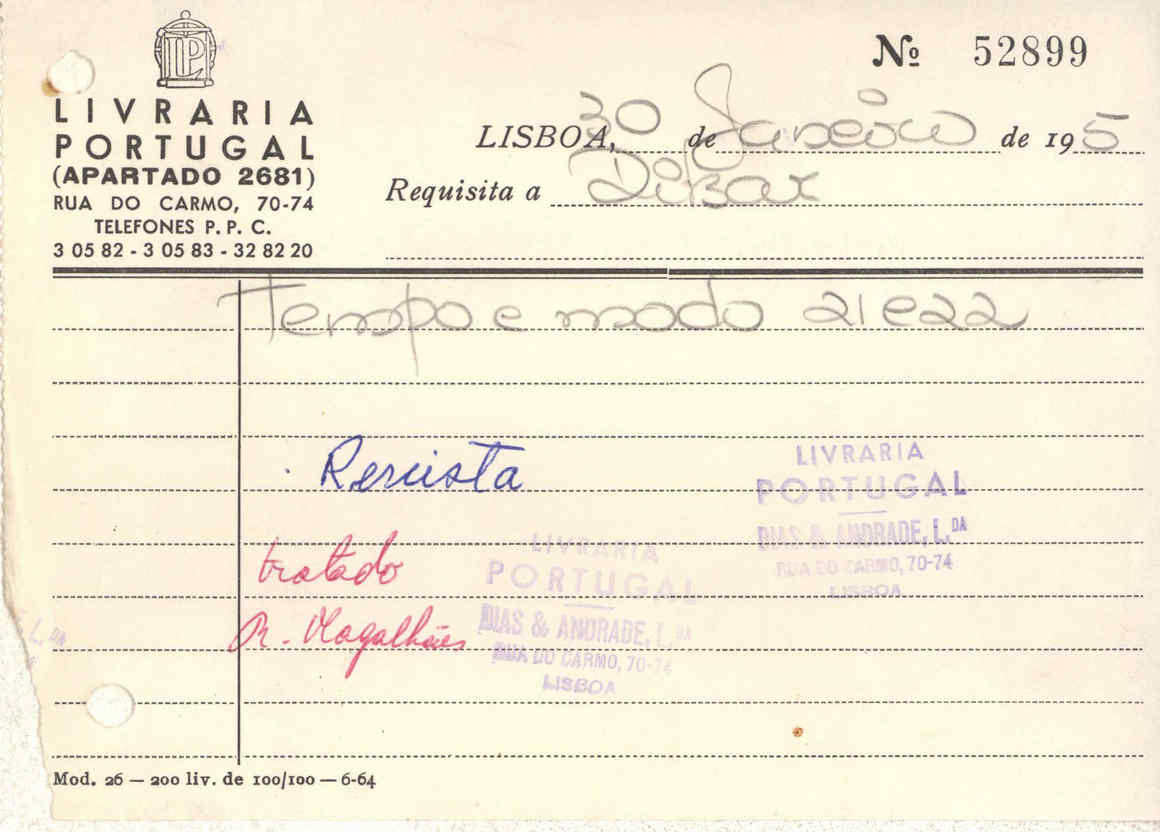 LP
Nº 52899
LIVRARIA
PORTUGAL
(APARTADO 2681)
RUA DO CARMO, 70-74
TELEFONES P. P. C.
3 05 82 - 3 05 83 - 32 82 20
LISBOA, 30 de Janeiro de 195
Requisita a
Tempo e modo 21 e 22
Revista
tratado
R. Magalhães
LIVRARIA
PORTUGAL
DIAS & ANDRADE, L.DA
RUA DO CARMO, 70-74
LISBOA
LIVRARIA
PORTUGAL
DIAS & ANDRADE, L.DA
RUA DO CARMO, 70-74
LISBOA
L.DA
Mod. 26 — 200 liv. de 100/100 — 6-64